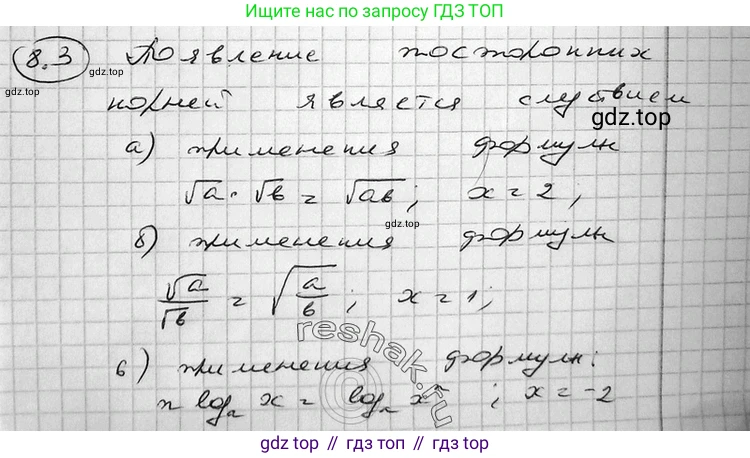 Пишите нас по запросу ГДЗ ТОП
8.3 Появление посторонних
gdz.top
корней является следствием
gdz.top
а) применения формулы
√a · √b = √ab; x = 2;
gdz.top
б) применения формулы
√a/√b = √(a/b); x = 1;
reshak.ru
в) применения формулы:
n logₐ x = logₐ xⁿ; x = -2
gdz.top // гдз топ // gdz.top